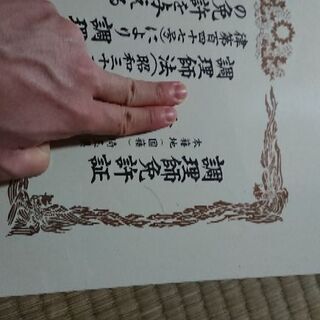 調理師免許証
本籍地(国籍)
調理師法(昭和三十
律第百四十七号)により調理
の免許を与える